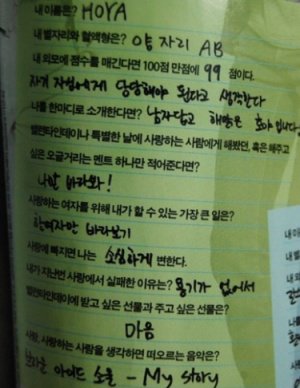 내 이름은? HOYA
내 별자리와 혈액형은? 양자리 AB
내 외모에 점수를 매긴다면 100점 만점에 99 점이다.
자기 자신에게 당당해야 된다고 생각한다
나를 한마디로 소개한다면? 남자답고 해맑은 호야 입니다
발렌타인데이나 특별한 날에 사랑하는 사람에게 해봤던, 혹은 해주고
싶은 오글거리는 멘트 하나만 적어준다면?
나만 바라봐!
사랑하는 여자를 위해 내가 할 수 있는 가장 큰 일은?
한여자만 바라보기
사랑에 빠지면 나는 소심하게 변한다.
내가 지난번 사랑에서 실패한 이유는? 용기가 없어서
발렌타인데이에 받고 싶은 선물과 주고 싶은 선물은?
마음
사랑, 사랑하는 사람을 생각하면 떠오르는 음악은?
아이드 소울 - My story
내 이
내 별
내 외